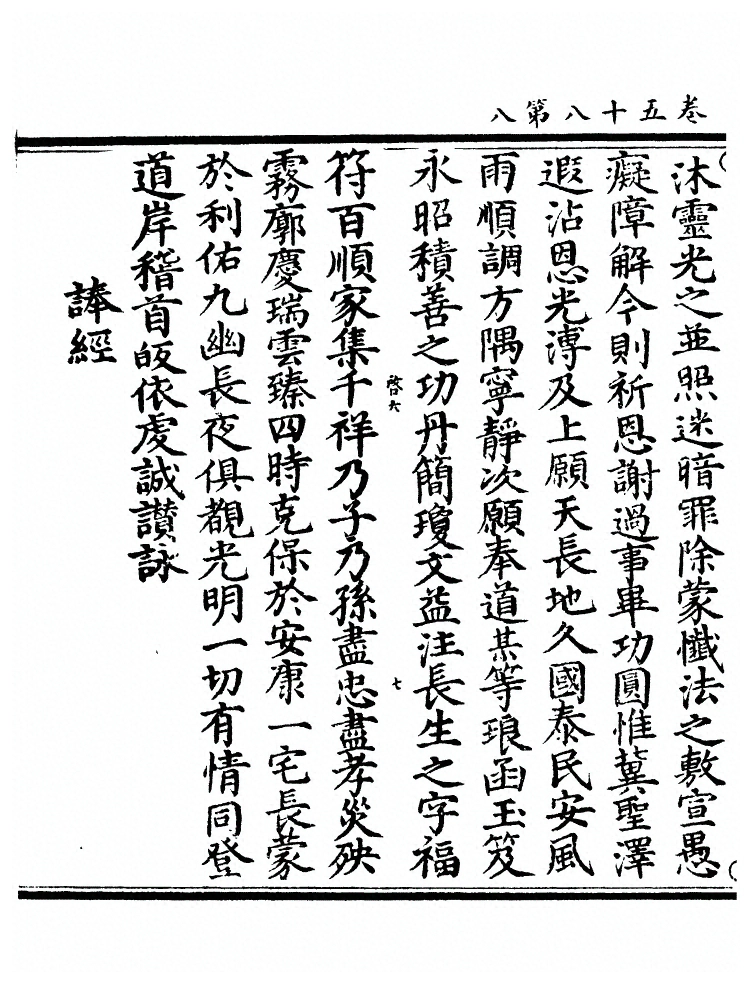 卷五十八第八
沐靈光之並照迷暗罪除蒙懺法之敷宣愚
癡障解今則祈恩謝過事畢功圓惟冀聖澤
遐沾恩光溥及上願天長地久國泰民安風
雨順調方隅寧靜次願奉道某等琅函玉笈
永昭積善之功丹簡瓊文益注長生之字福
啓六
七
符百順家集千祥乃子乃孫盡忠盡孝災殃
霧廓慶瑞雲臻四時克保於安康一宅長蒙
於利佑九幽長夜俱覩光明一切有情同登
道岸稽首皈依虔誠讚詠
諱經